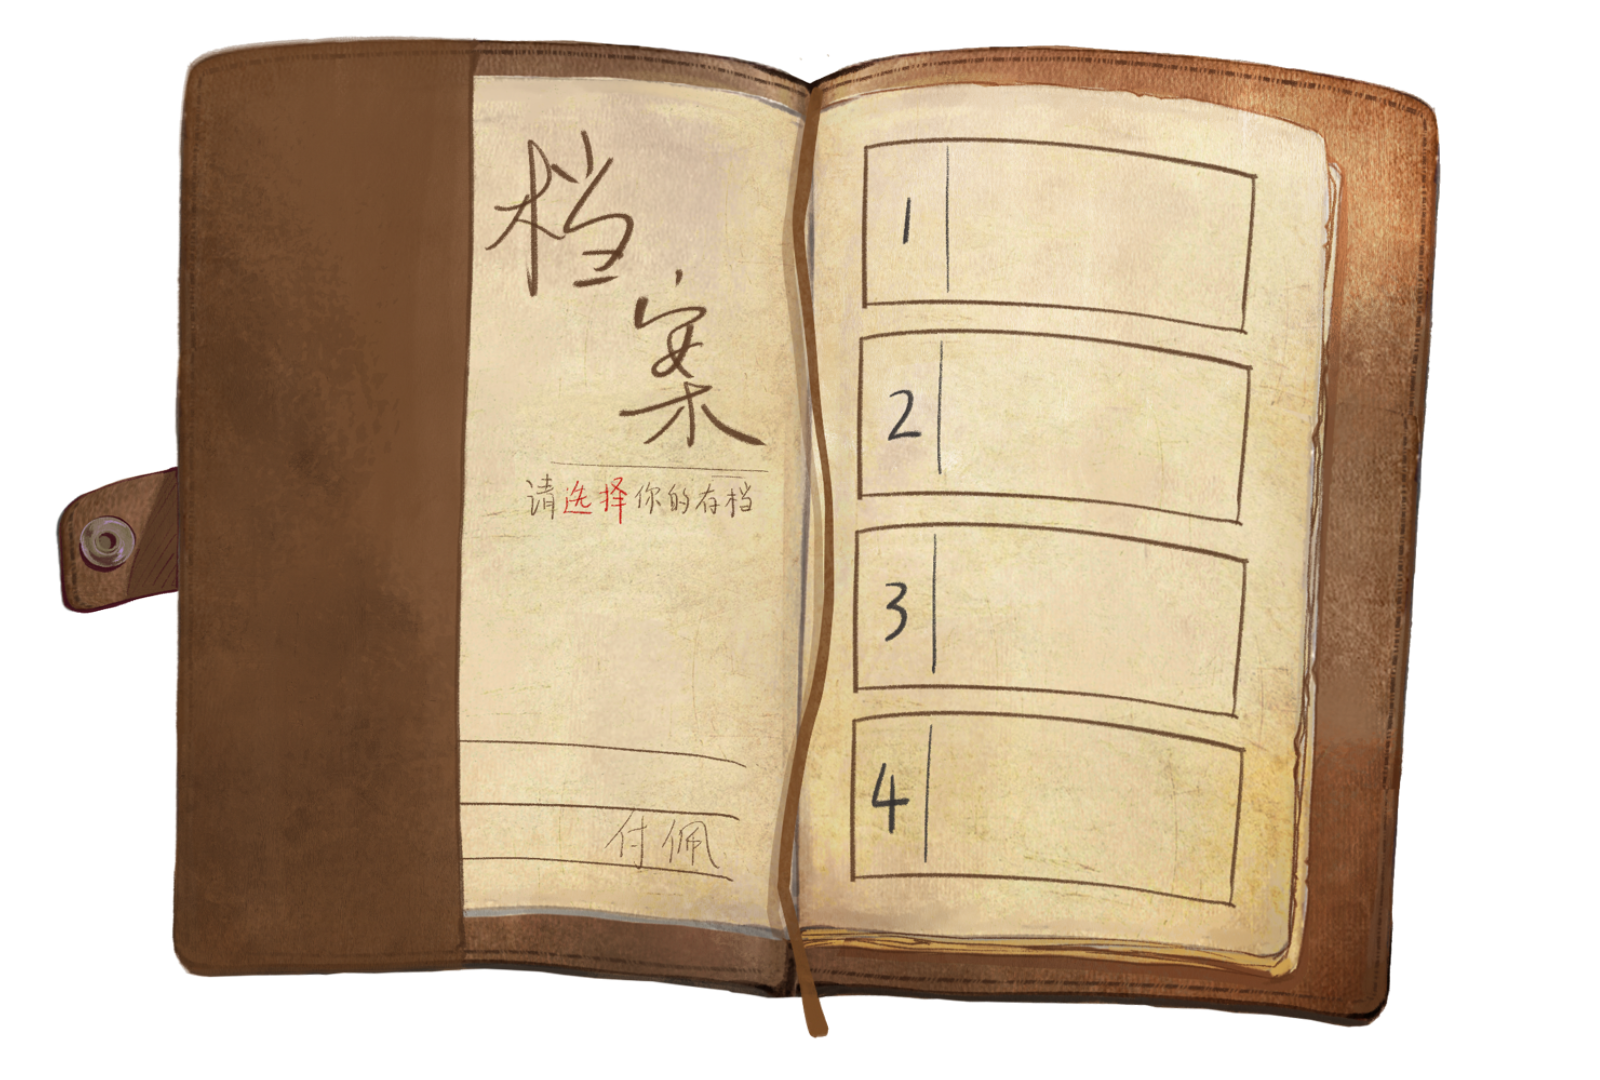 档案
请选择你的存档
付佩
1
2
3
4